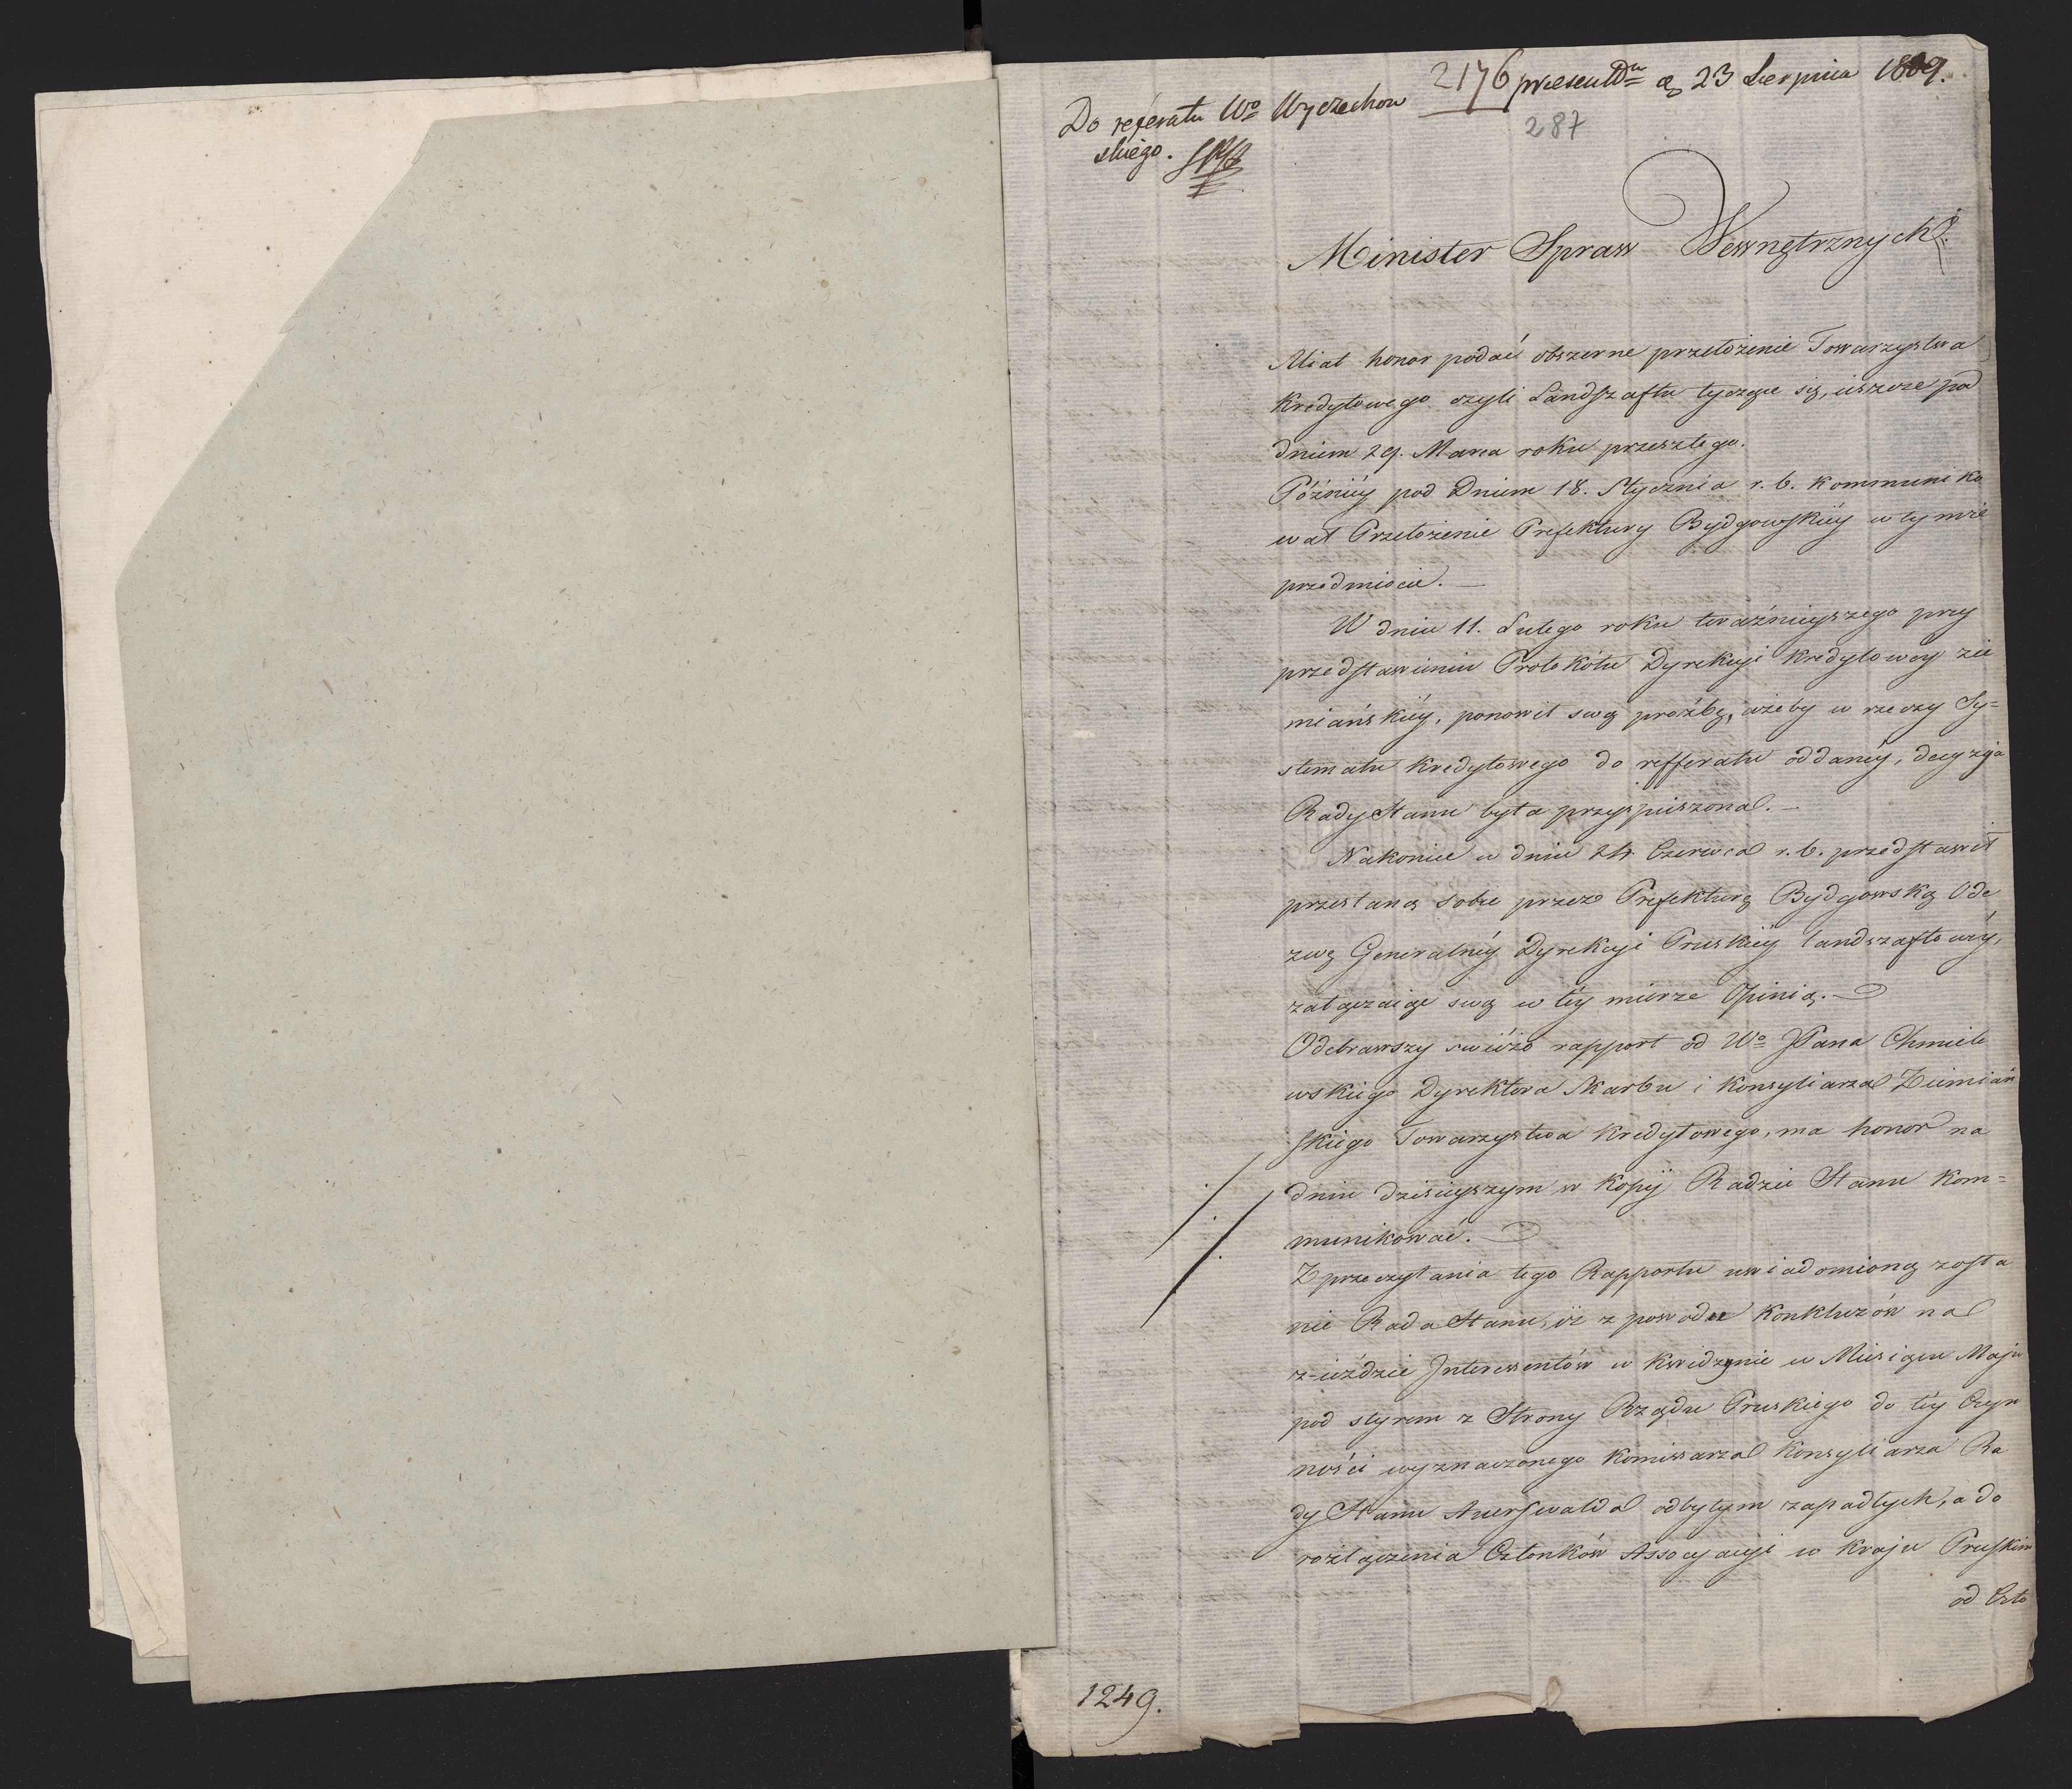 2176 præsent Dn d 23 Sierpnia 1809.
Do referatu Wo Wyczechow
skiego.
287
Minister Spraw Wewnętrznych.
Miał honor podać obszerne przełożenie Towarzystwa
Kredytowego czyli Landszaftu tyczące się, ieszcze pod
dniem 29. Marca roku przeszłego.
Późniéy pod Dniem 18. Stycznia r. b. kommuniko
wał Przełożenie Prefektury Bydgowskiéy w tymże
przedmiocie. —
W dniu 11. Lutego roku teraźnieyszego przy
przedstawieniu Protokółu Dyrekcyi Kredytowey zie
miańskiéy, ponowił swą proźbę, ażeby w rzeczy Sy=
stematu Kredytowego do refferatu oddanéy, decyzya
Rady Stanu była przyspieszona. —
Nakoniec w dniu 24 Czerwca r. b. przedstawił
przesłaną sobie przez Prefekturę Bydgowską Ode
zwę Generalnéy Dyrekcyi Pruskiéy landszaftowéy,
załączaiąc swą w téy mierze Opinią. —
Odebrawszy świéżo rapport od Wo JPana Chmiele
wskiego Dyrektora Skarbu i Konsyliarza Ziemiań
skiego Towarzystwa Kredytowego, ma honor na
dniu dzisieyszym w kopij Radzie Stanu kom=
munikować. —
Z przeczytania tego Rapportu uwiadomioną zosta
nie Rada Stanu, iż z powodu Konkluzów na
z-ieździe Interessentów w Kwidzynie w Miesiącu Maju
pod styrem z Strony Rządu Pruskiego do téy Czyn
ności wyznaczonego Komissarza Konsyliarza Ra
dy Stanu Auerswalda odbytym zapadłych, a do
rozłączenia Członków Assocyacyi w kraju Pruskim
od Czło
1249.